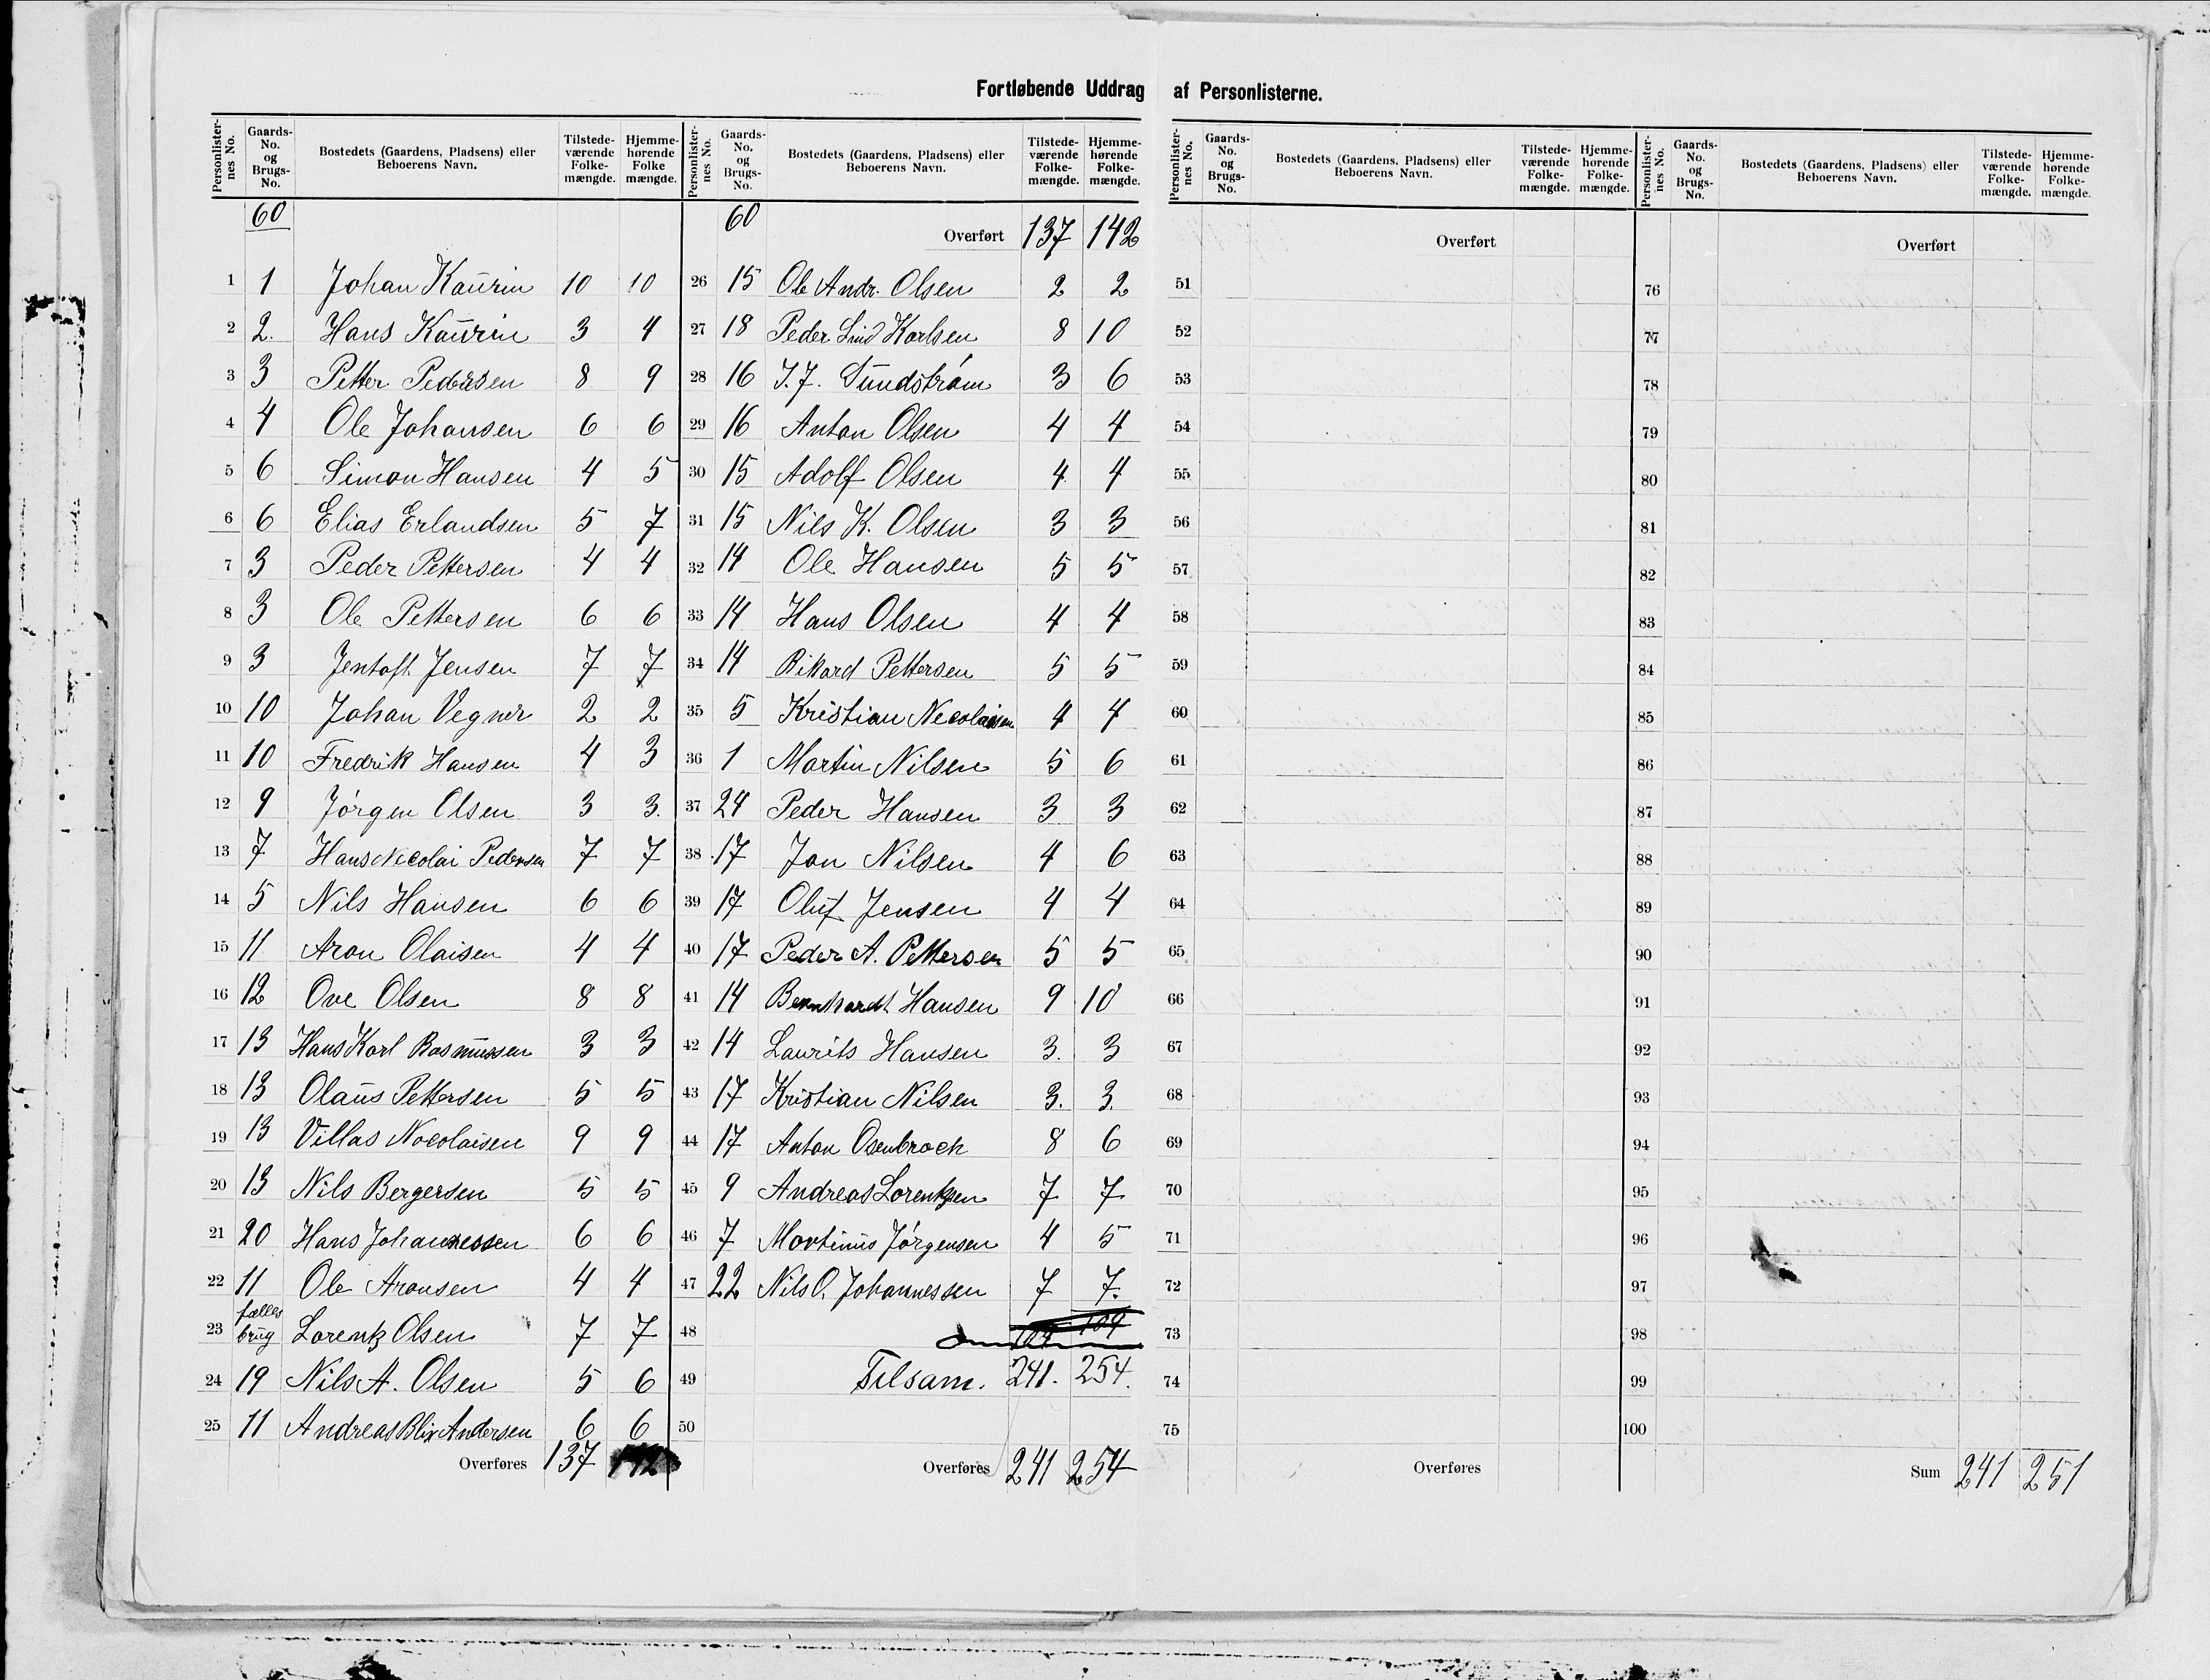 Fortløbende Uddrag af Personlisterne.
Personlister-nes No. Gaards-No. og Brugs-No. Bostedets (Gaardens, Pladsens) eller Beboerens Navn. Tilstede-værende Folke-mængde. Hjemme-hørende Folke mængde.
60
1 1 Johan Kaŭrin 10 10
2 2. Hans Kaŭrin 3 4
3 3 Petter Pedersen 8 9
4 4 Ole Johansen 6 6
5 6 Simon Hansen 4 5
6 6 Elias Erlandsen 5 7
7 3 Peder Pettersen 4 4
8 3 Ole Pettersen 6 6
9 3 Jentoft Jensen 7 7
10 10 Johan Vegner 2 2
11 10 Fredrik Hansen 4 3
12 9 Jörgen Olsen 3 3.
13 7 Hans Nicolai Pedersen 7 7
14 5 Nils Hansen 6 6
15 11 Aron Olaisen 4 4
16 12 Ove Olsen 8 8
17 13 Hans Karl Rasmŭssen 3 3
18 13 Olaŭs Pettersen 5 5
19 13 Villas Nocolaisen 9 9
20 13 Nils Bergersen 5 5
21 20 Hans Johannessen 6 6
22 11 Ole Aronsen 4 4
23 fælles brŭg Lorentz Olsen 7 7
24 19 Nils A. Olsen 5 6
25 11 Andreas Blix Andersen 6 6
Overføres 137 142
Personlister-nes No. Gaards-No. og Brugs-No. Bostedets (Gaardens, Pladsens) eller Beboerens Navn. Tilstede-værende Folke-mængde. Hjemme-hørende Folke-mængde.
60 Overført 137 142
26 15 Ole Andr. Olsen 2 2
27 18 Peder Lind Karlsen 8 10
28 16 J. J. Sŭndström 3 6
29 16 Anton Olsen 4 4
30 15 Adolf Olsen 4 4
31 15 Nils K. Olsen 3 3
32 14 Ole Hansen 5 5
33 14 Hans Olsen 4 4
34 14 Rikard Pettersen 5 5
35 5 Kristian Necolaisen 4 4
36 1 Martin Nilsen 5 6
37 24 Peder Hansen 3 3
38 17 Jon Nilsen 4 6
39 17 Oluf Jensen 4 4
40 17 Peder A. Pettersen 5 5
41 14 Bernhardt Hansen 9 10
42 14 Laurits Hansen 3. 3
43 17 Kristian Nilsen 3. 3.
44 17 Anton Osenbroch 8 6
45 9 Andreas Lorentzen 7 7
46 7 Martinŭs Jörgensen 4 5
47 22 Nils O. Johannessen 7 7.
48 104 109
49 Tilsam. 241. 254.
50
Overføres 241 254
Personlister-nes No. Gaards-No. og Brugs-No. Bostedets (Gaardens, Pladsens) eller Beboerens Navn. Tilstede-værende Folke-mængde. Hjemme-hørende Folke-mængde.
Overført
51
52
53
54
55
56
57
58
59
60
61
62
63
64
65
66
67
68
69
70
71
72
73
74
75
Overføres
Personlister-nes No. Gaards-No. og Brugs-No. Bostedets (Gaardens, Pladsens) eller Beboerens Navn. Tilstede-værende Folke-mængde. Hjemme-hørende Folke-mængde.
Overført
76
77
78
79
80
81
82
83
84
85
86
87
88
89
90
91
92
93
94
95
96
97
98
99
100
Sum 241 251